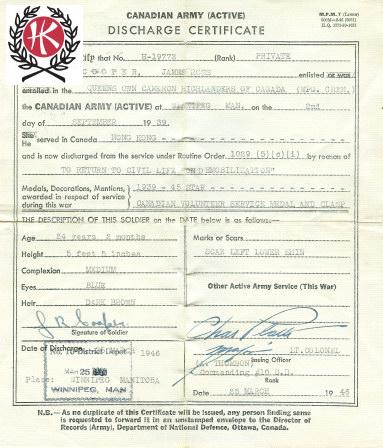 CANADIAN ARMY (ACTIVE)
DISCHARGE CERTIFICATE
M.F.M. 7
HK
ify that No. H-19773 (Rank) PRIVATE
COOPER, JAMES ROSS enlisted or was
enrolled in the QUEENS OWN CAMERON HIGHLANDERS OF CANADA (MFG. CHEM.)
the CANADIAN ARMY (ACTIVE) at MAN. on the 2nd
day of SEPTEMBER 1939.
She
He served in Canada HONG KONG
and is now discharged from the service under Routine Order 1029 (5)(c)(i) by reason of
TO RETURN TO CIVIL LIFE "ON DEMOBILIZATION"
Medals, Decorations, Mentions, 1939 - 45 STAR
awarded in respect of service
during this war CANADIAN VOLUNTEER SERVICE MEDAL AND CLASP
THE DESCRIPTION OF THIS SOLDIER on the DATE below is as follows:—
Age 24 years 2 months
Height 5 feet 5 inches
Complexion MEDIUM
Eyes BLUE
Hair DARK BROWN
J R Cooper
Signature of Soldier
Marks or Scars
SCAR LEFT LOWER SHIN
Other Active Army Service (This War)
Major LT. COLONEL
Issuing Officer
THOMSON
Commanding #10 D.D.
Rank
Date of Discharge 1946
No. 10 District Depot
MAR 25
WINNIPEG, MAN
Place: WINNIPEG MANITOBA
Date 25 MARCH 1946
N.B.— As no duplicate of this Certificate will be issued, any person finding same
is requested to forward it in an unstamped envelope to the Director of
Records (Army), Department of National Defence, Ottawa, Canada.